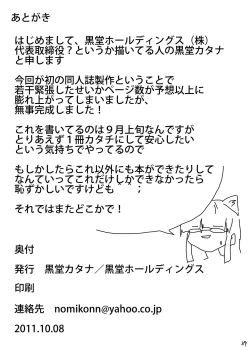 あとがき
はじめまして、黒堂ホールディングス（株）
代表取締役？というか描いてる人の黒堂カタナ
と申します
今回が初の同人誌製作ということで
若干緊張したせいかページ数が予想以上に
膨れ上がってしまいましたが、
無事完成しました！
これを書いてるのは９月上旬なんですが
とりあえず１冊カタチにして安心したい
という気持ちでやってるので
もしかしたらこれ以外にも本ができたりして
なんていってこれだけしかできなかったら
恥ずかしいですけども　；
それではまたどこかで！
奥付
発行　黒堂カタナ／黒堂ホールディングス
印刷
連絡先　nomikonn@yahoo.co.jp
2011.10.08